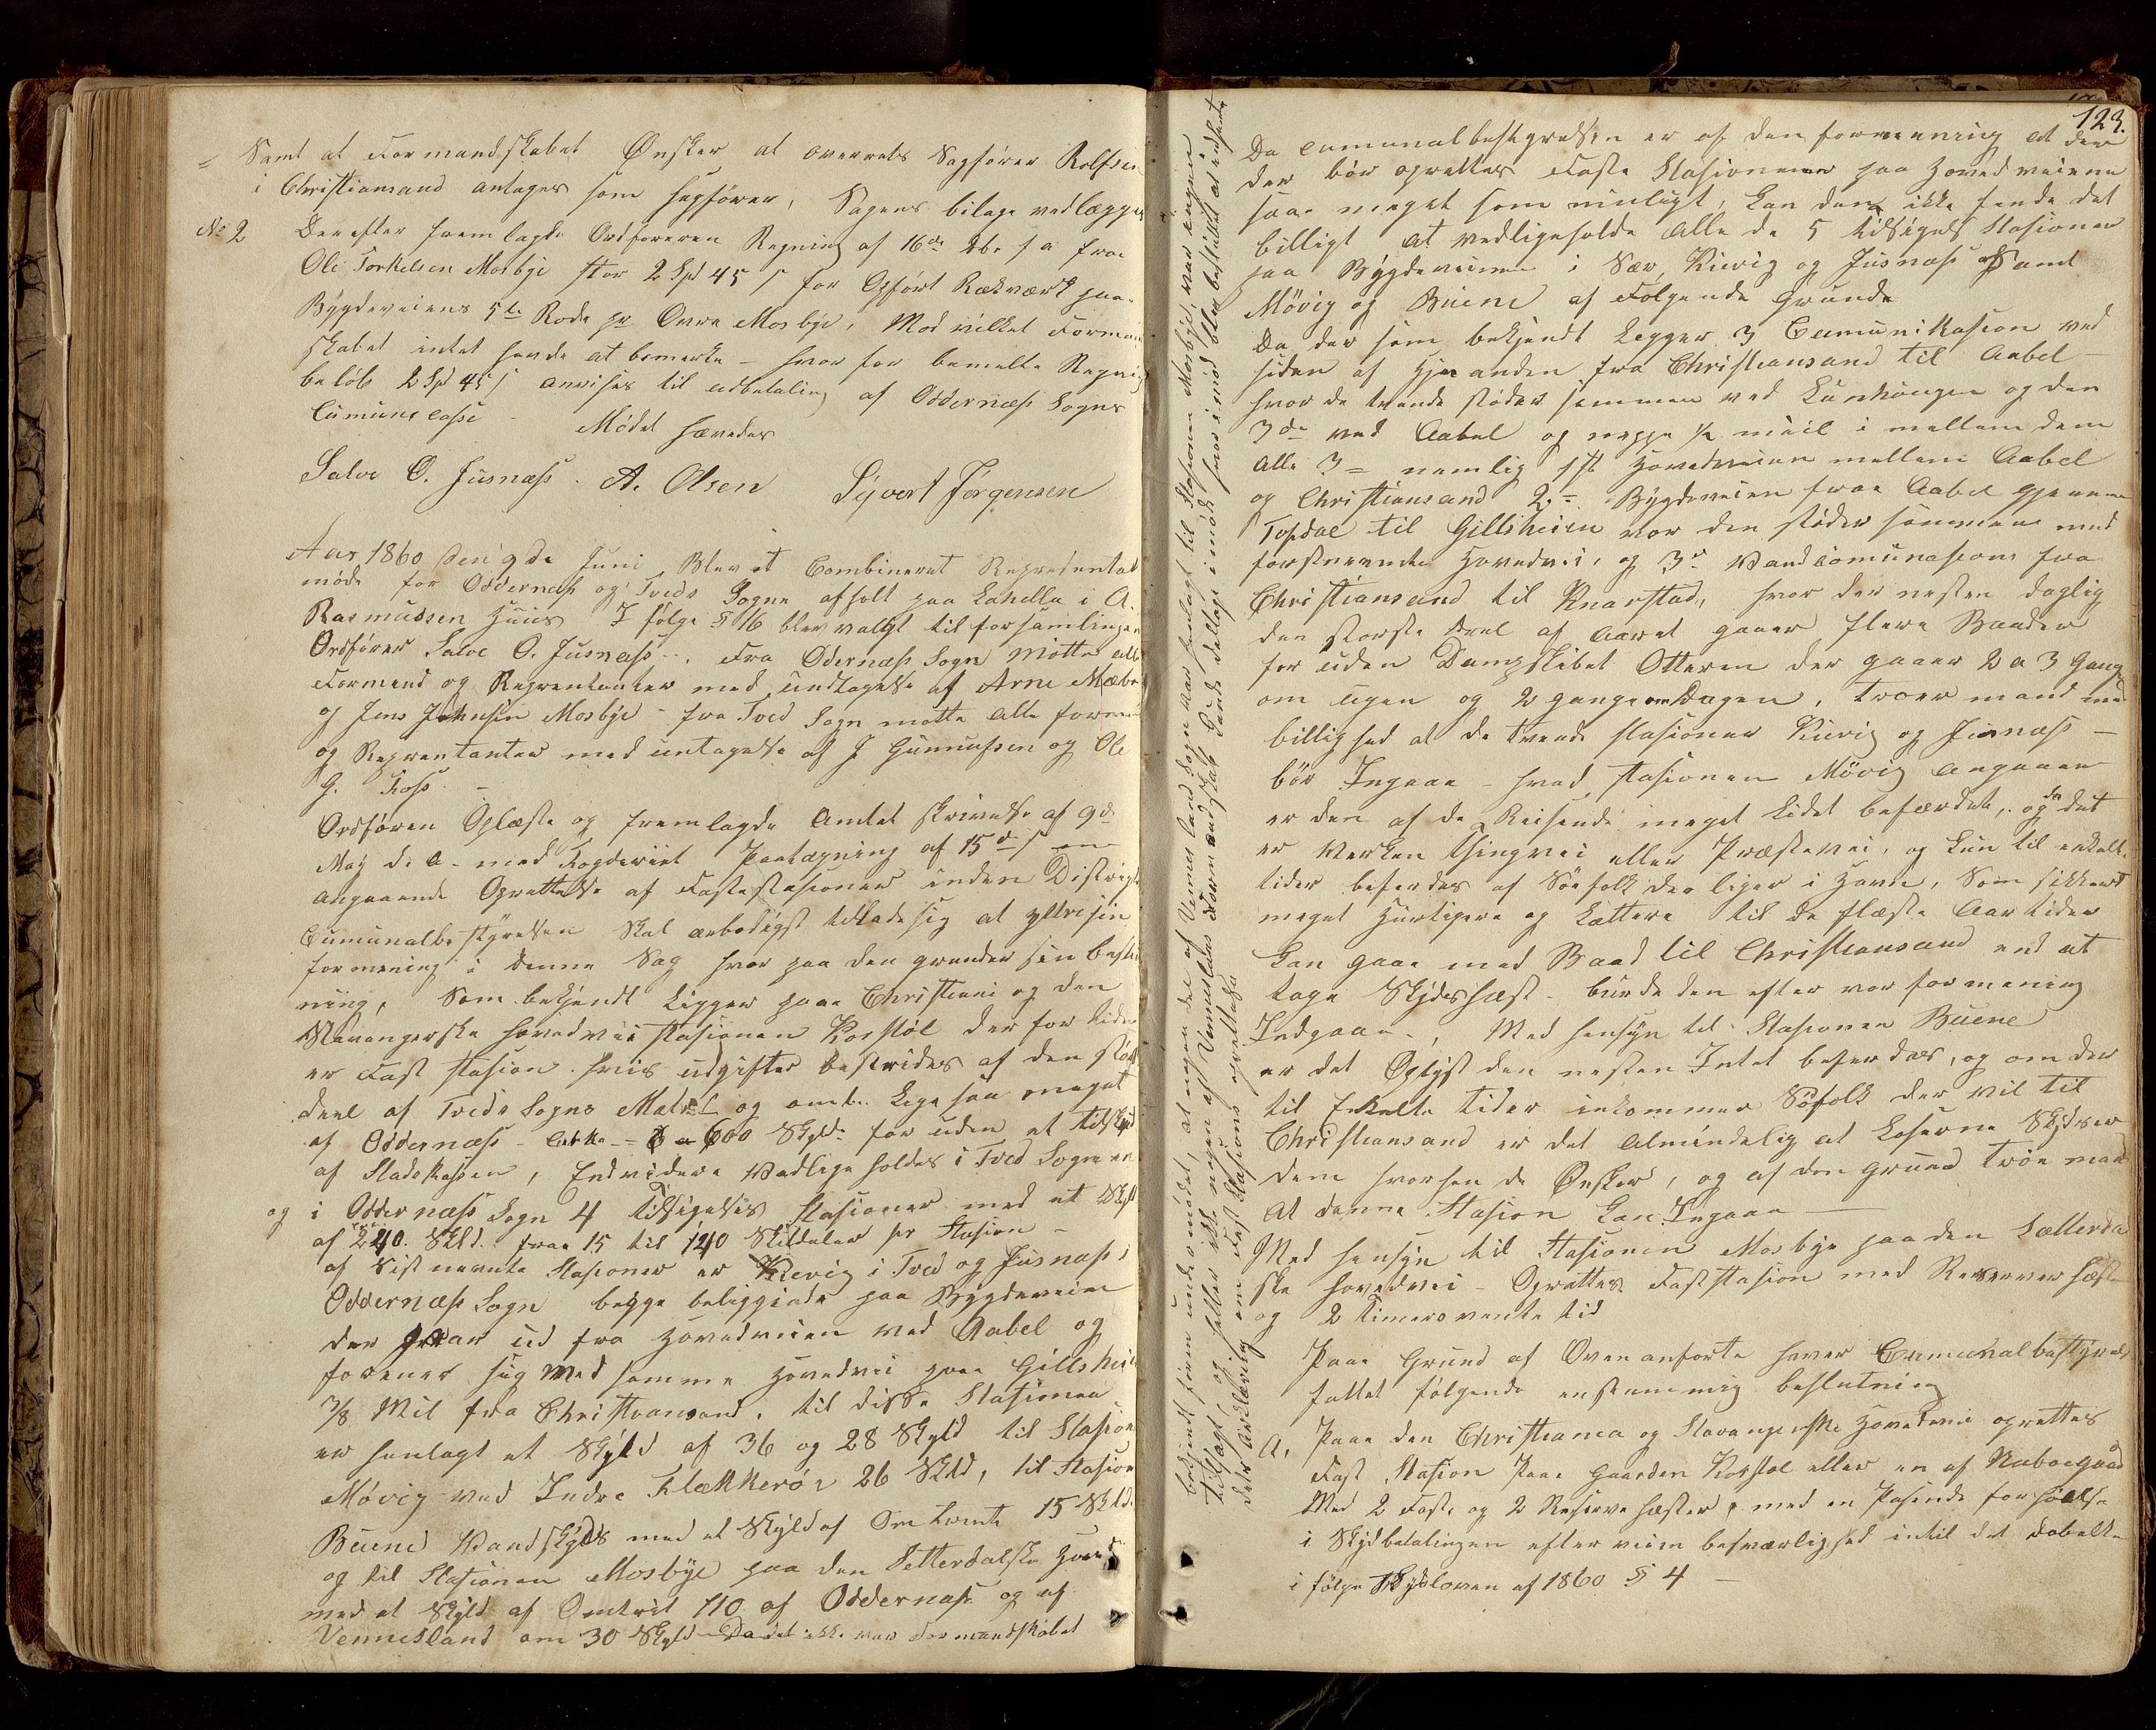 = Samt at Formandskabet Ønsker at overrets Sagfører Rolfsen
i Christiansand antages som sagfører, Sagens bilage vedlægges
No 2 Derefter fremlagde Ordføreren Regning af 16de 2be f a fra
Ole Torkelsen Mosbye stor 2 Spd 45 s for Opført Rækværk paa
Bygdeveiens 5te Rode pr Øvre Mosbye, Mod vilket Formand
skabet intet havde at bemerke – hvor for bemelte Regnings
beløb 2 Spd 45 s anvises til udbetaling af Oddernæss Sogns
Cumunecasse – Mødet hævedes
Salve O. Jusnæss. A. Olsen Syvert Jørgensen
Aar 1860 den 9de Juni Blev et Combineret Represental
møde for Oddernæs og Tveds Sogne afholt paa Lahella i A.
Rasmussen Huus I følge § 16 blev valgt til forsamlingen
Ordfører Salve O. Jusnæss. Fra Odernæss Sogn Møtte alle
Formend og Reprentanter med undtagelse af Arne Mæbø
og Jens Johnsen Mosbye – fra Tved Sogn møtte alle form
og Reprentanter med untagelse af J Gunnufsen og Ole
G. Foss –
Ordføren Oplæste og fremlagde Amtet skrivelse af 9de
May d. A. med Fogderiet Paategning af 15de s m
angaaende Oprettelse af Fastestasioner inden Distrigt
Cumunalbestyrelsen Skal ærbødigst tillade sig at yttre sin
formening i denne Sag hvor paa den grunder sin beslut
ning, Som bekjendt Ligger paa Christiani og den
Stavangerske hovedvei stasionen Kosstøl der for tiden
er Fast stasion hvis udgifter bestrides af den største
deel af Tveds Sogns Matrl og omtr. Lige saa meget
af Oddernæss – Cirka – 600 Skyld for uden et tilskud
af Stadskassen, Endvidere Vedlige holdes i Tved Sogn en
og i Oddernæss Sogn 4 tilsigelses stasioner med et Skyld
af 240 Skld. fraa 15 til 140 Skilddaler pr Stasion –
af Sist nevnte Stasioner er Kievig i Tved og Jusnæss i
Oddernæss Sogn begge beliggende paa Bygdeveien
der gaar ud fra Hovedveien ved Aabel og
forener sig med samme Hovedvei paa Gillsheien
7/8 Mil fra Christiansand. til disse Stasioner
er henlagt et Skyld af 36 og 28 Skyld til Stasion
Møvig ved Indre Flekkerøe 26 Skld, til Stasion
Buene Vandskyds med et Skyld af Om trent 15 Skld.
og til Stasionen Mosbye paa den Setterdalske Hoved
med et Skyld af Omtrit 110 af Oddernæss og af
Vennesland om 30 Skyld Da det ikke var Formandskabet
bekjendt førend under mødet, at nogen del af Vennes land sogn var henlagt til Stasionen Mosbye, var ingen
tilsagt, og heller ikke nogen af Venneslands Formandskab kunde deltage i mødet
der Erklæring om Fast Stasions oprettelse
123.
Da cumunalbestyrelsen er af den formening at der
der bør oprettes Faste Stasioner paa Hovedveiene
saa meget som muligt, kan den ikke finde det
billigt at vedligeholde Alle de 5 tilsigels Stasioner
paa Bygdeveiene i Sær, Kievig og Jusnæss Samt
Møvig og Buene af Følgende Grunde
Da der som bekjendt Ligger 3 Cumunikasion ved
siden af Hjinanden fra Christiansand til Aabel –
hvor de tvende støder sammen ved Lunkongen og den
3de ved Aabel og neppe 1/2 Miil i mellem dem
alle 3 = nemlig 1st Hovedveien mellem Aabel
og Christiansand 2= Bygdeveien fraa Aabel gjennem
Topdal til Gillsheien vor den støder sammen med
førstnevnte Hovedvei, og 3de Vandcomunasions fra
Christiansand til Knarstad, hvor der nesten daglig
den største deel af Aaret gaaer flere Baader
for uden Dampskibet Otteren der gaaer 2 a 3 Gang
om ugen og 2 gange om Dagen, troer mand med
billighed at de tvende stasioner Kievig og Jusnæss –
bør Ingaae – hvad stasionen Møvig angaaer
er den af de Reisende meget Lidet befærdet, og da det
er Verken thingvei eller Præstevei, og kun til enkelte
tider beferdes af Søefolk der liger i Havn, Som sikkert
meget Hurtigere og Lettere til de flæste Aar tider
kan gaae med Baad til Christiansand end at
tage Skydshæst. burde den efter vor formening
Indgaae, Med hensyn til Stasionen Buene
er det Oplyst den nesten Intet beferdes, og om der
til Enkelte tider inkommer Søfolk der vil til
Christiansand er det almindelig at Loserne Skydser
dem hvorhen de Ønsker, og af den grund troe man
at denne Stasion kan Ingaae –
Med hensyn til Stasionen Mosbye paa den Sætterdal
ske hovedvei – Oprettes Faststasion med Reserver hæste
og 2 timers vente tid
Paae Grund af Ovenanførte haver Cumunalbestyrels
fattet følgende enstemmig beslutning
A. Paae den Christiania og Stavangerske Hovedvei oprettes
Fast Stasion Paae Gaarden Kosstøl eller en af Naboegaard
Med 2 Faste og 2 Reserve hæster, med en Pasende forhøielse
i Skydbetalingen efter veien besværlighed intil det Dobelte
i følge Skydsloven af 1860 § 4 –